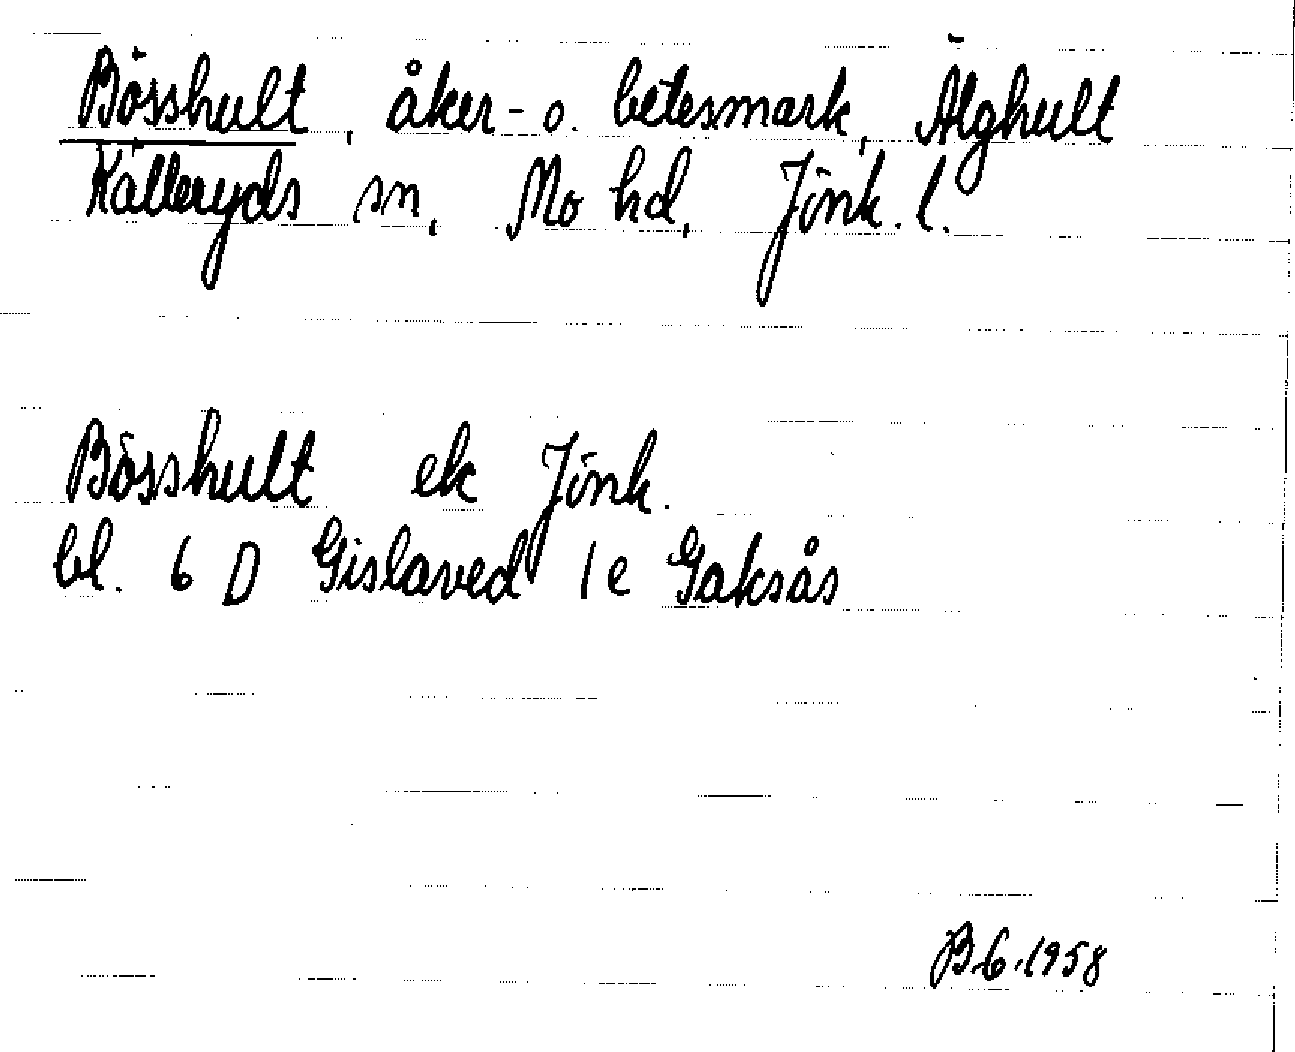 Bösshult, åker- o. betesmark, Älghult
Källeryds sn, Mo hd, Jönk. l.
Bösshult ek Jönk.
bl. 6 D Gislaved 1e Gaksås
B6.1958